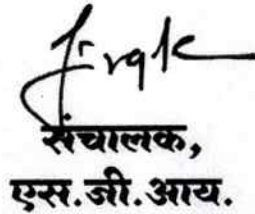 संचालक,
एस.जी.आय.